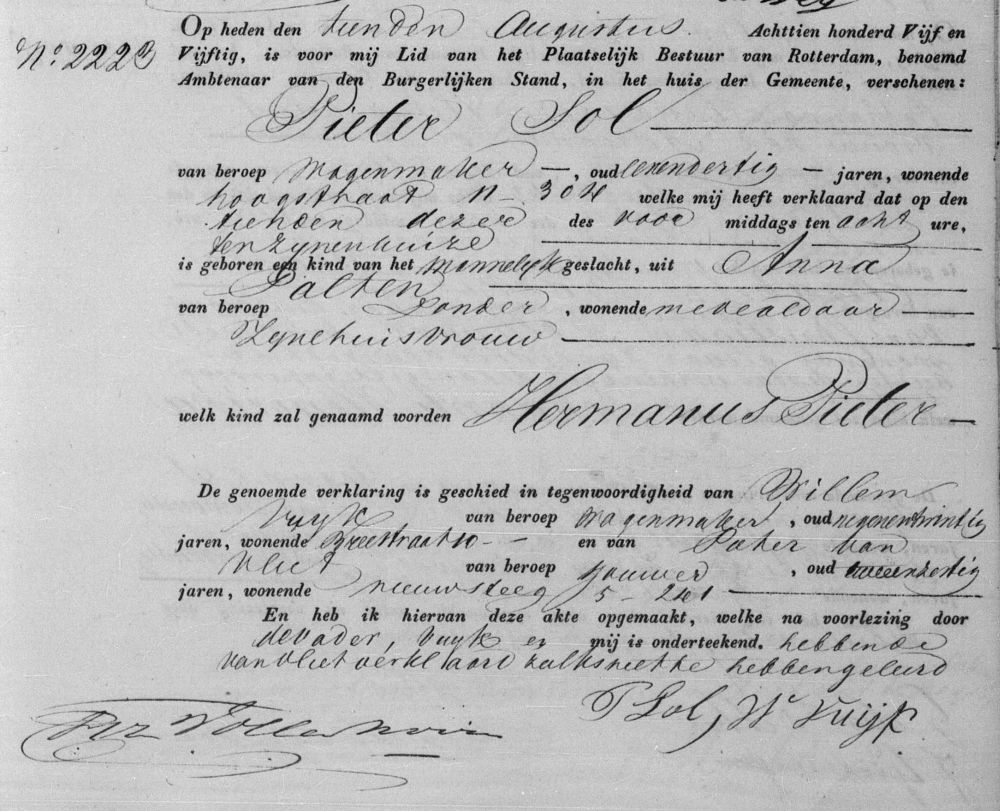 Op heden den tienden Augustus. Achttien honderd Vijf en
No. 2223 Vijftig, is voor mij Lid van het Plaatselijk Bestuur van Rotterdam, benoemd
Ambtenaar van den Burgerlijken Stand, in het huis der Gemeente, verschenen:
Pieter Sol
van beroep Wagenmaker —, oud zesendertig — jaren, wonende
hoogstraat N - 304 welke mij heeft verklaard dat op den
tienden dezer des voor middags ten acht ure,
tenzijnenhuize
is geboren een kind van het Mannelijk geslacht, uit Anna
Palten
van beroep Zonder, wonende mede aldaar —
Zijne huisvrouw —
welk kind zal genaamd worden Hermanus Pieter —
De genoemde verklaring is geschied in tegenwoordigheid van Willem
Vuyk van beroep Wagenmaker, oud negenentwintig
jaren, wonende Breestraat 10 - - en van Pater van
Vliet van beroep Sjouwer, oud
jaren, wonende nieuwsteeg 5 - 241 —
En heb ik hiervan deze akte opgemaakt, welke na voorlezing door
de vader, Vuyk en mij is onderteekend. hebbende
van Vliet verklaard zulks niette hebben geleerd
P Sol, W Vuijk